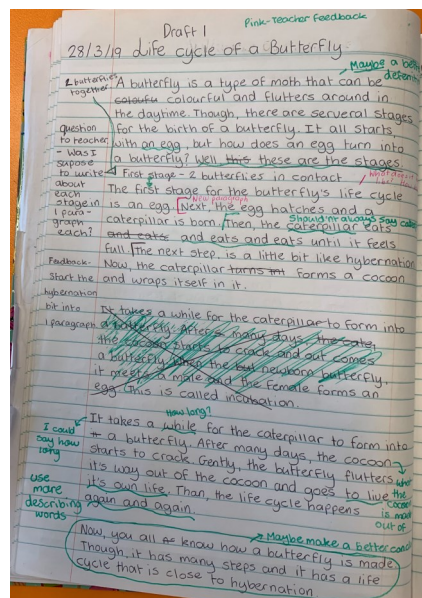 Pink-Teacher Feedback
Draft 1
28/3/19 Life cycle of a Butterfly
Maybe a
2 butterflies together
A butterfly is a type of moth that can be
colourful and flutters around in
the daytime. Though, there are serveral stages
for the birth of a butterfly. It all starts,
with an egg, but how does an egg turn into
a butterfly? Well, this these are the stages.
question
to teacher
- Was I
supose
to write
about
each
stage in
1 para-
graph
each?
First stage - 2 butterflies in contact
The first stage for the butterfly's life cycle
New paragraph
is an egg. Next, the egg hatches and a
Should'nt always say
caterpillar is born. Then, the caterpillar eats
and eats and eats and eats until it feels
full. The next step, is a little bit like hybernation
Now, the caterpillar turns int forms a cocoon
and wraps itself in it.
Feedback-
Start the
hybernation
bit into
1 paragraph
It takes a while for the caterpillar to form into
a butterfly. After many days, the
the cocoon starts to crack and out comes
a butterfly. When the but newborn butterfly,
it greets a male and the female forms an
egg. This is called incubation.
How long?
I could
say how
long
It takes a while for the caterpillar to form into
a butterfly. After many days, the cocoon
starts to crack. Gently, the butterfly flutters
it's way out of the cocoon and goes to live
it's own life. Than, the life cycle happens
again and again.
what the
cocoon
is made
out of
use
more
describing
words
Maybe make a better
Now, you all know how a butterfly is made
Though, it has many steps and it has a life
cycle that is close to hybernation